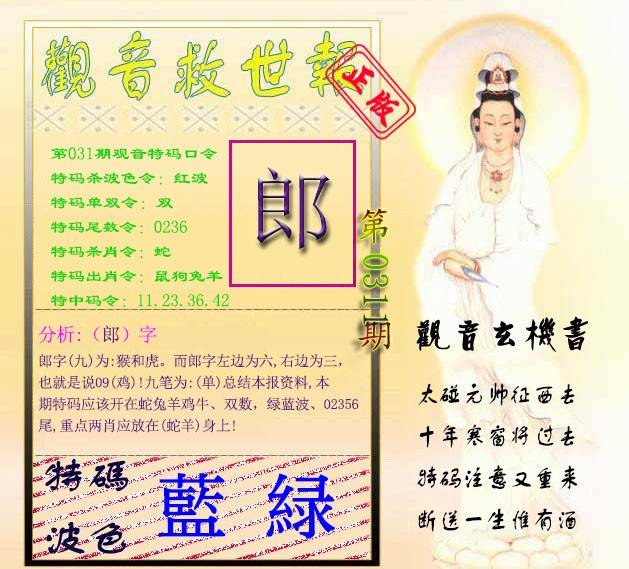 觀音救世報
正版
第031期观音特码口令
特码杀波色令：红波
特码单双令：双
特码尾数令：0236
特码杀肖令：蛇
特码出肖令：鼠狗兔羊
特中码令：11.23.36.42
郎
第0311期
分析:（郎）字
郎字(九)为:猴和虎。而郎字左边为六,右边为三,
也就是说09(鸡)!九笔为:(单)总结本报资料,本
期特码应该开在蛇兔羊鸡牛、双数，绿蓝波、02356
尾,重点两肖应放在(蛇羊)身上!
特碼
波色
藍綠
觀音玄機書
太碰元帅征西去
十年寒窗将过去
特码注意又重来
断送一生惟有酒